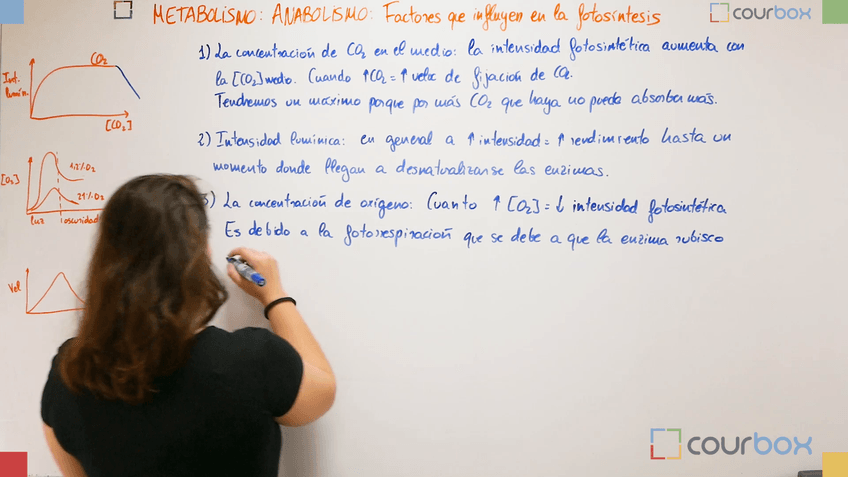 METABOLISMO: ANABOLISMO: Factores que influyen en la fotosíntesis
courbox
1) La concentración de CO2 en el medio: la intensidad fotosintética aumenta con
la [CO2] medio. Cuando ↑CO2 = ↑ veloc de fijación de CO2.
Tendremos un máximo porque por más CO2 que haya no pueda absorber más.
2) Intensidad lumínica: en general a ↑ intensidad = ↑ rendimiento hasta un
momento donde llegan a desnaturalizarse las enzimas.
3) La concentración de oxígeno: Cuanto ↑ [O2] = ↓ intensidad fotosintética
Es debido a la fotorrespiración que se debe a que la enzima rubisco
Int.
lumín.
CO2
[CO2]
[O2]
21% O2
luz
oscuridad
Vel
courbox